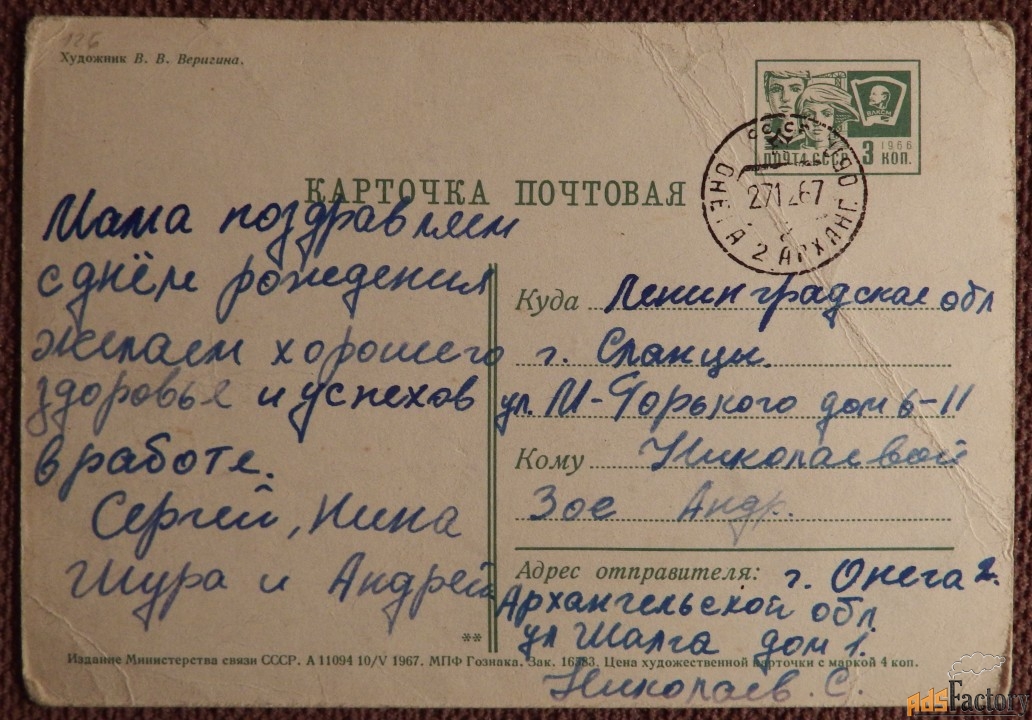 126
Художник В. В. Веригина.
ВЛКСМ
1966
ПОЧТА СССР 3 КОП.
КАРТОЧКА ПОЧТОВАЯ
ОНЕГА 2 АРХАНГ. ОБЛ.
27 12 67
Мама поздравляем
с днём рождения
желаем хорошего
здоровье и успехов
в работе.
Сергей, Нина
Шура и Андрей
Куда Ленинградская обл
г. Сланцы.
ул. М-Горького дом 6-11
Кому Николаевой
Зое Андр.
Адрес отправителя: г. Онега 2.
Архангельской обл
ул Шалга дом 1.
Николаев. С.
**
Издание Министерства связи СССР. А 11094 10/V 1967. МПФ Гознака. Зак. 16383. Цена художественной карточки с маркой 4 коп.
AdsFactory